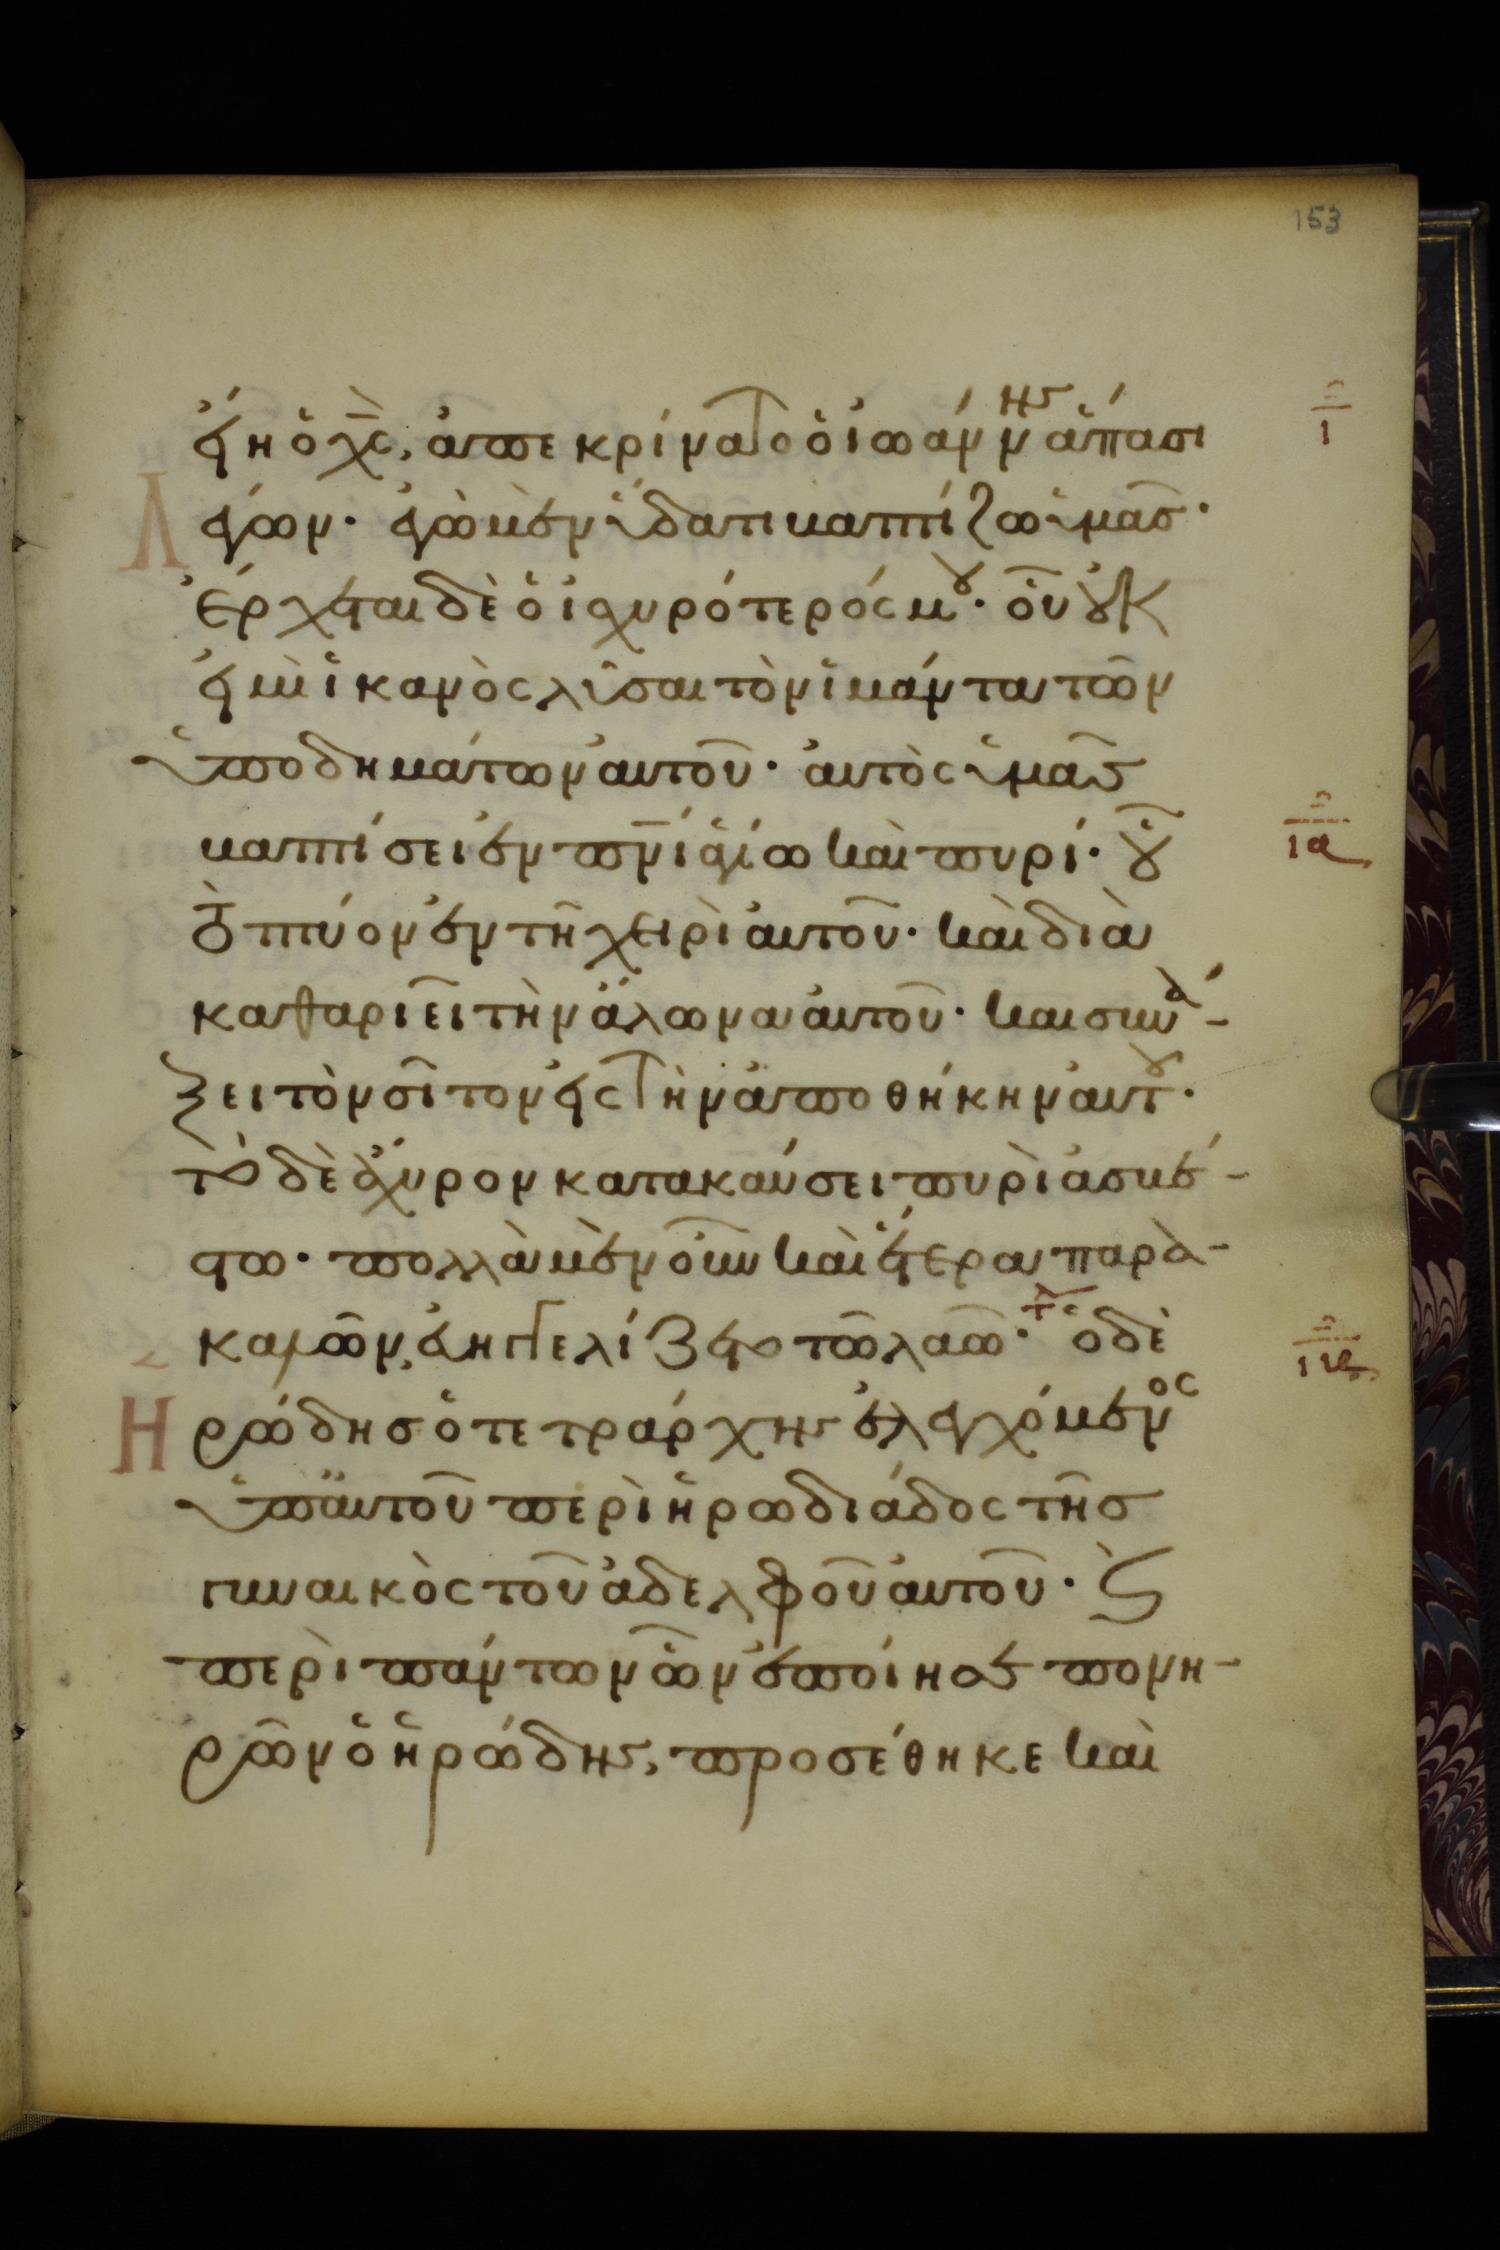 153
εἴη ὁ χ̅ς̅, ἀπεκρίνατο ὁ ἰωάννης ἅπασι
Λέγων· ἐγὼ μὲν ὕδατι βαπτίζω ὑμᾶς·
ἔρχεται δὲ ὁ ἰσχυρότερός μου· οὗ οὐκ
εἰμὶ ἱκανὸς λῦσαι τὸν ἱμάντα τῶν
ὑποδημάτων αὐτοῦ· αὐτὸς ὑμᾶς
βαπτίσει ἐν π̅ν̅ι̅ ἁγίω καὶ πυρί· οὗ
τὸ πτύον ἐν τῆ χειρὶ αὐτοῦ· καὶ δια
καθαριεῖ τὴν ἅλωνα αὐτοῦ· καὶ συνά-
ξει τὸν σῖτον εἰς τὴν ἀποθήκην αὐτοῦ·
τὸ δὲ ἄχυρον κατακαύσει πυρὶ ἀσβέ-
στω· πολλὰ μὲν οὖν καὶ ἕτερα παρα-
καλῶν, εὐηγγελίζετο τῶ λαῶ· ὁ δὲ
Ηρώδης ὁ τετράρχης ἐλεγχόμενος
ὑπ' αὐτοῦ περὶ ἡρωδιάδος τῆς
γυναικὸς τοῦ ἀδελφοῦ αὐτοῦ· ϗ
περὶ πάντων ὧν ἐποίησε πονη-
ρῶν ὁ ἡρώδης, προσέθηκε καὶ
ι
ια
ιβ